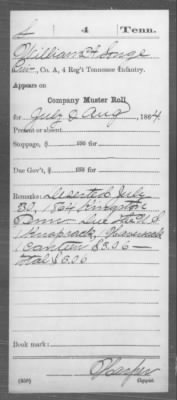 L | 4 | Tenn.
William H. Longe
Co. A, 4 Reg't Tennessee Infantry.
Appears on
Company Muster Roll
for July & Aug, 1864.
Present or absent
Stoppage, $ 100 for
Due Gov't, $ 100 for
Remarks: Deserted July
30, 1864 Kingston
Tenn. Due for
1 Knapsack, 1 Haversack
1 canteen $3.06 —
total $3.06
Book mark:
(359)
Copyist.